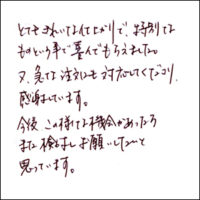 とてもきれいな仕上がりで、特別な
ものという事で喜んでもらえました。
又、急な注文にも対応してくださり、
感謝しています。
今後この様な機会があったら
また検討し お願いしたいと
思っています。